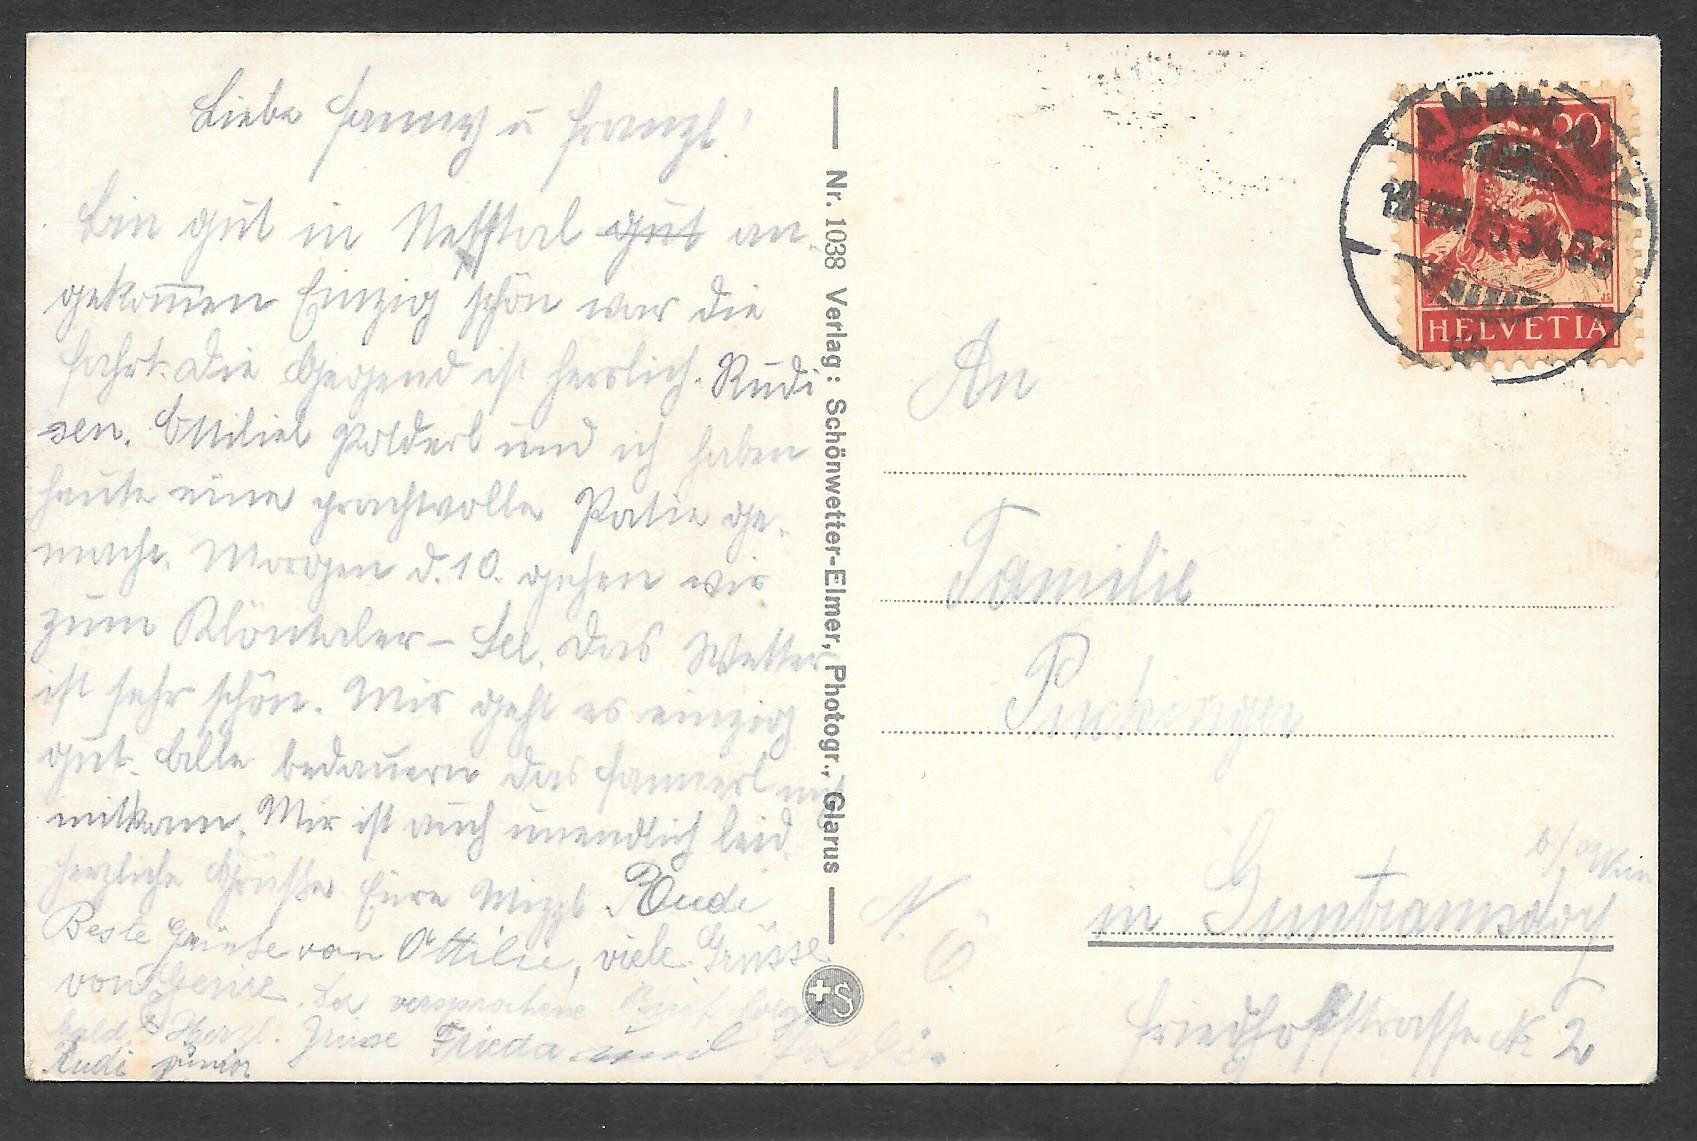 Liebe Fanny u Franzl!
Bin gut in Nesstal gut an-
gekommen Einzig schön war die
Fahrt. Die Gegend ist herrlich. Rudi
sen. Ottiliel Polderl und ich haben
heute eine prachtvolle Patie ge-
macht. Morgen d. 10. gehen wir
zum Klöntaler-See. Das Wetter
ist sehr schön. Mir geht es einzig
gut. Alle bedauern das Fannerl nit
mitkam. Mir ist auch unendlich leid.
Herzliche Grüße Eure Mizzl Rudi
Beste Grüße von Ottilie, viele Grüsse
von Der versprochene Brief folgt
bald. Herzl. Grüsse Frieda und Poldi.
Rudi junior
Nr. 1038 Verlag: Schönwetter-Elmer, Photogr., Glarus
+S
20
HELVETIA
An
Familie
Puchinger
b/ Wien
N. Ö. in Guntramsdorf
Friedhofstrasse Nr. 2